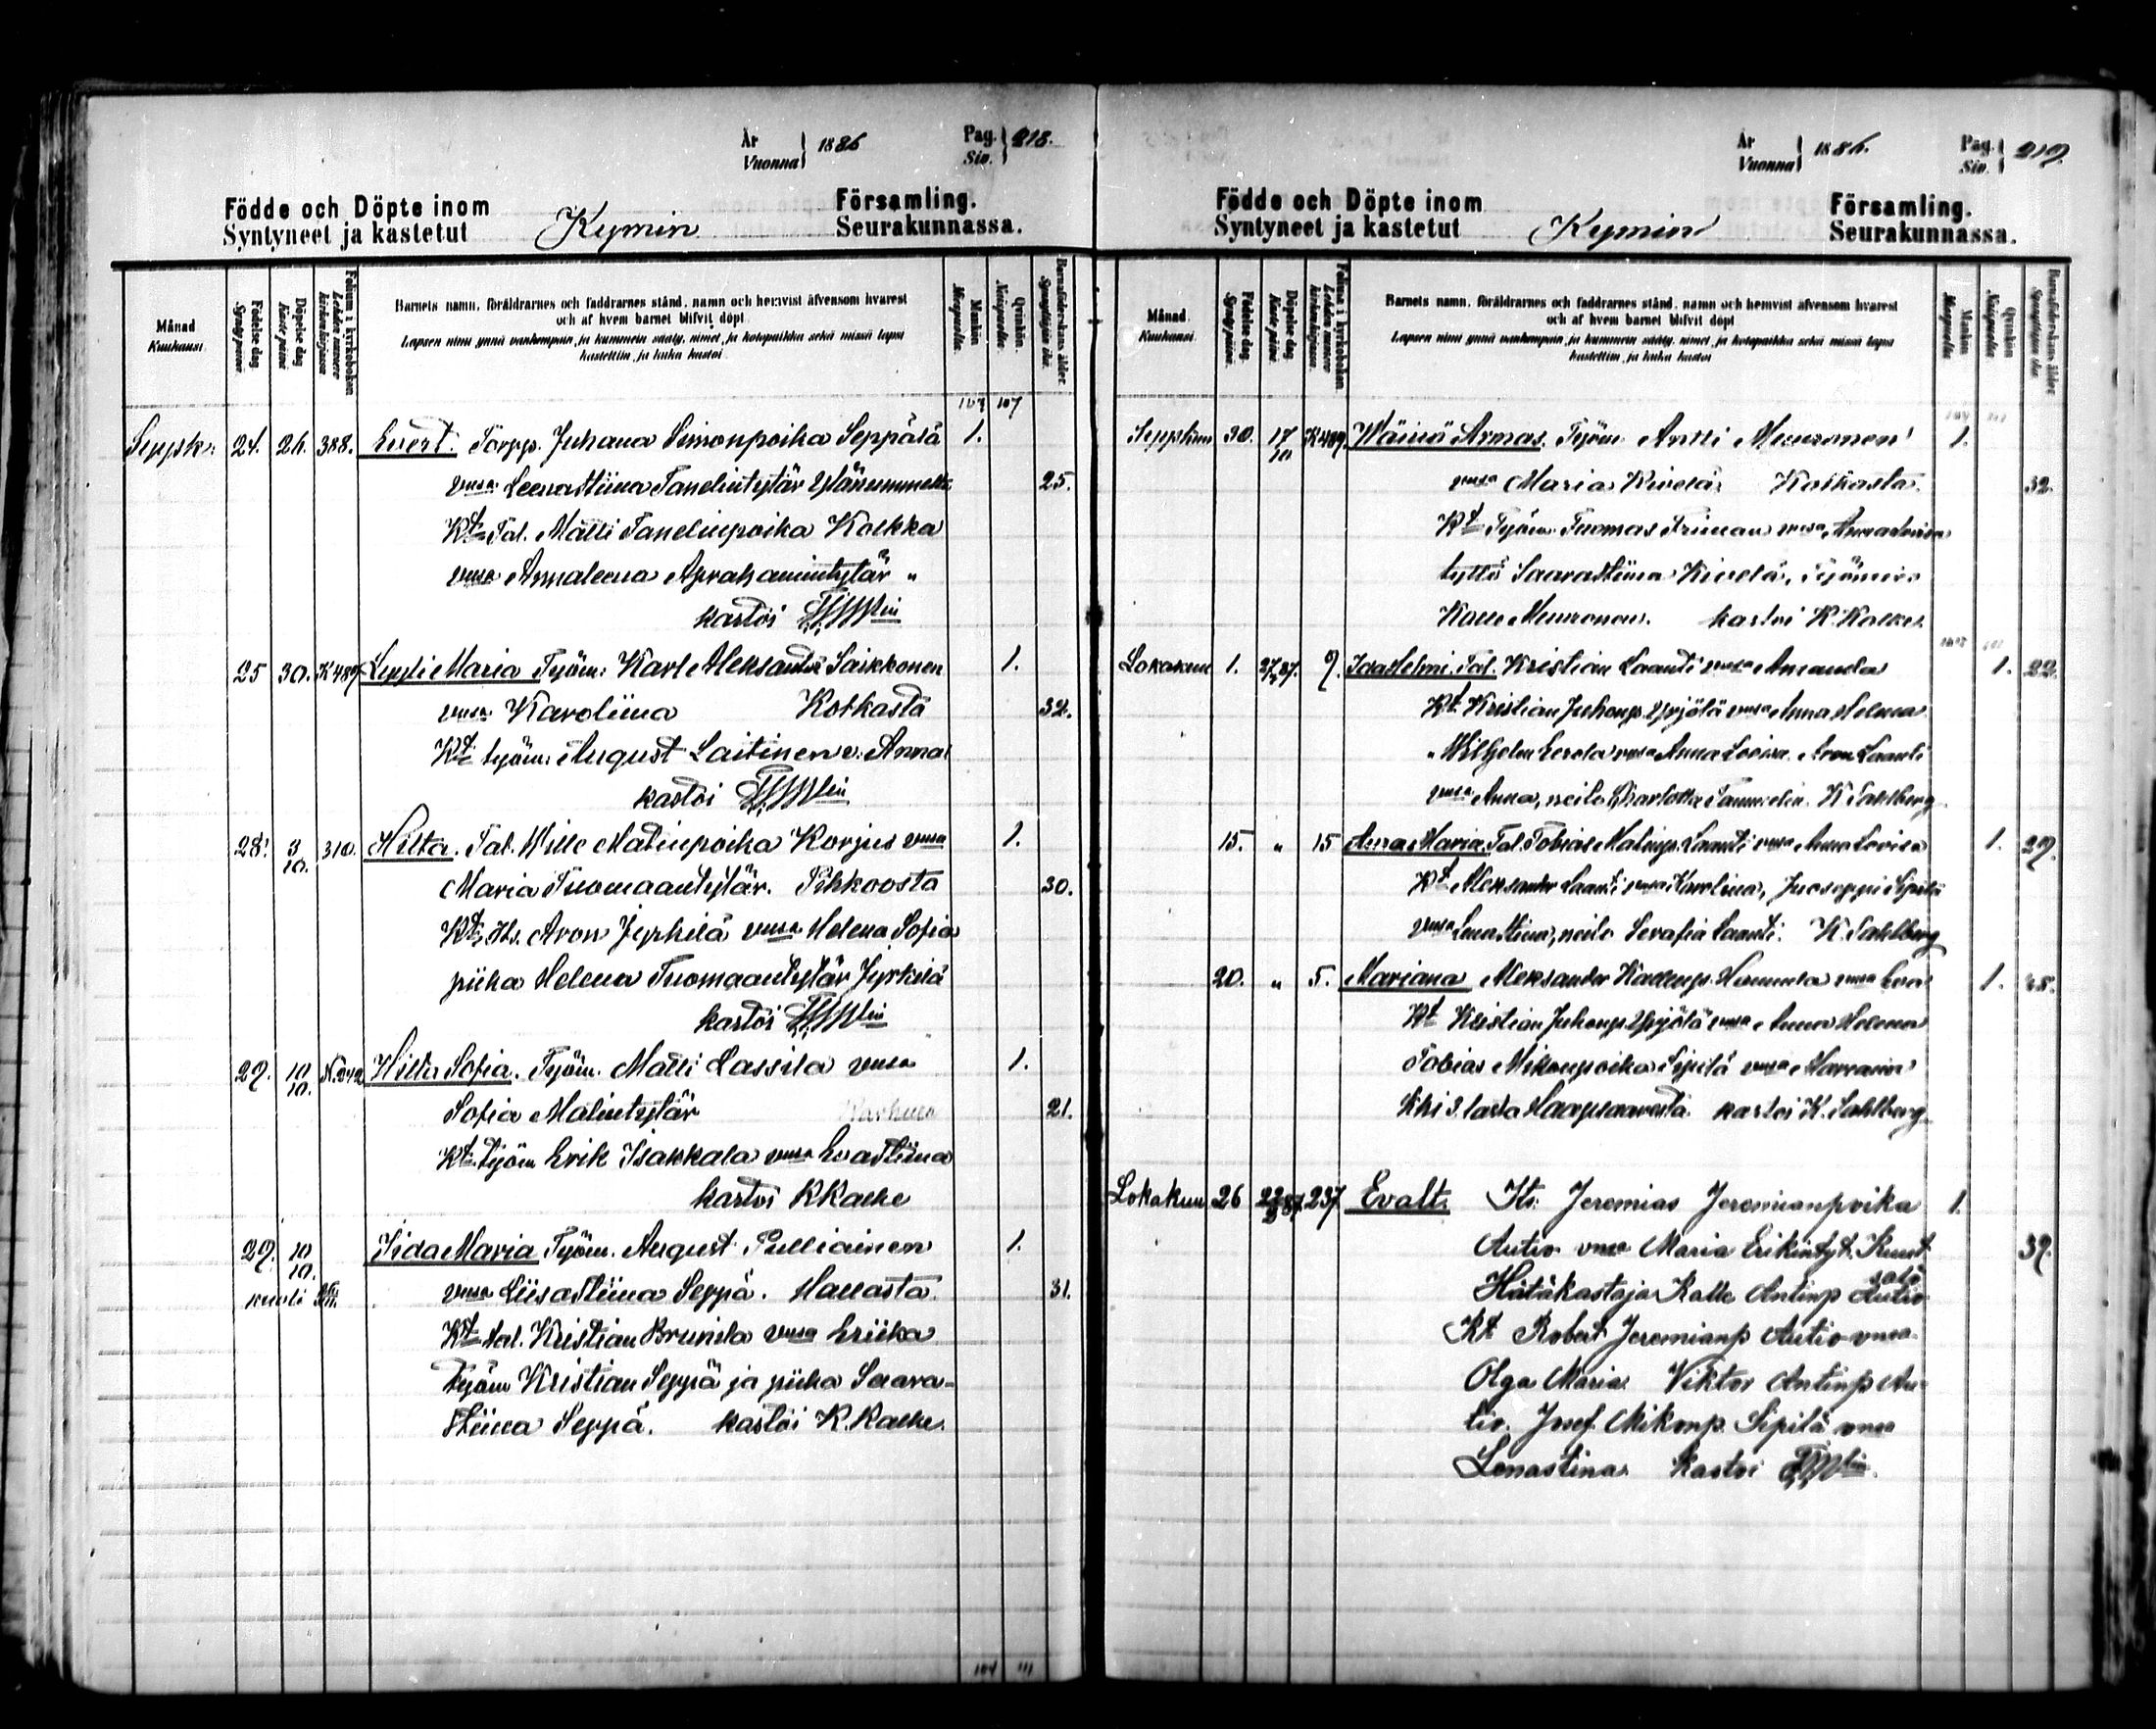 År
Vuonna } 1886
Pag.
Siv. } 218.
Födde och Döpte inom
Syntyneet ja kastetut
Kymin
Församling.
Seurakunnassa.
Månad
Kuukausi
Födelse dag
Syntypäivä
Döpelse dag
Kaste päivä
Folium i kyrkoboken
Lehden numero kirkonkirjassa
Barnets namn, föräldrarnes och faddrarnes stånd, namn och hemvist äfvensom hvarest
och af hvem barnet blifvit döpt
Lapsen nimi ynnä vanhempain, ja kummein sääty, nimet, ja kotopaikka sekä missä lapsi
kastettiin, ja kuka kastoi.
Mankön
Miespuolia.
Qvinkön.
Naispuolia.
Barnaföderskans ålder.
Synnyttäjän ikä.
103 107
Syysk. 24. 26. 388. Evert. Torpp. Juhana Simonpoika Seppälä 1.
vmsa Leenastiina Tanelintytär 25.
Kt. Tal. Matti Tanelinpoika Kolkka
vmsa Annaleena Aprahamintytär "
kastoi
25 30. K489 Lyyli Maria Työm. Karl Aleksander Saikkonen 1.
vmsa Karoliina Kotkasta 32.
Kt. työm. August Laitinen v. Anna
kastoi
28. 3/10. 310. Hilta. Tal. Wille Matinpoika Korjus vmsa 1.
Maria Tuomaantytär. Pihkoosta 30.
Kt. Its. Aron Jyrkilä vmsa Helena Sofia
piika Helena Tuomaantytär Jyrkilä
kastoi
29. 10/10. N.242 Hilta Sofia. Työm. Matti Lassila vmsa 1.
Sofia Matintytär 21.
Kt. työm Erik Isakkala vmsa Evastiina
kastoi K Kaelke
29. 10/10. Iida Maria Työm. August Pulliainen 1.
kuoli vmsa Liisastiina Seppä. Hallasta. 31.
Kt. tal. Kristian Brunila vmsa Eriika
työm Kristian Seppä ja piika Saara-
stiina Seppä. kastoi K. Kaelke.
104 111
År
Vuonna } 1886.
Pag.
Siv. } 219.
Födde och Döpte inom
Syntyneet ja kastetut
Kymin
Församling.
Seurakunnassa.
Månad
Kuukausi
Födelse dag.
Syntypäivä.
Döpelse dag.
Kaste päivä.
Folium i kyrkoboken.
Lehden numero kirkonkirjassa.
Barnets namn, föräldrarnes och faddrarnes stånd, namn och hemvist äfvensom hvarest
och af hvem barnet blifvit döpt
Lapsen nimi ynnä vanhempain, ja kummein sääty, nimet, ja kotopaikka sekä missä lapsi
kastettiin, ja kuka kastoi
Mankön
Miespuolia
Qvinkön
Naispuolia.
Barnaföderskans ålder
Synnyttäjän ikä.
Syyskuu 30. 17/10 K489. Wäinö Armas. Työm. Antti Muuronen 1.
vmsa Maria Kivelä. Kotkasta. 32.
Kt Työm. Tuomas Friman vmsa Annaloviisa
tyttö Saarastiina Kivelä, Työmies
Kalle Muuronen. kastoi K. Kaelke.
Lokakuu 1. 27/2 87. 9. Ida Helmi. Tal. Kristian Laanti vmsa Amanda 1. 22.
Kt. Kristian Juhonp. Yrjölä vmsa Anna Helena
" Wilhelm Eerola vmsa Anna Loviisa. Aron Laanti
vmsa Anna, neito Charlotta Tammelin. K Sahlberg
15. " 15 Anna Maria. Tal. Tobias Matinp. Laanti vmsa Anna Lovisa 1. 29.
Kt Aleksander Laanti vmsa Karolina, Juoseppi Sipilä
vmsa Lenastina, neito Serafia Laanti. K. Sahlberg
20. " 5. Mariana Aleksander Kallenp. Hannula vmsa Eva 1. 45.
Kt Kristian Juhonp Yrjölä vmsa Anna Helena
Tobias Mikonpoika Sipilä vmsa Marianna
kki 3 lasta Haapsaaresta. kastoi K. Sahlberg.
Lokakuu 26 22/2 87. 237 Evalt. Its. Jeremias Jeremianpoika 1.
Autio vmsa Maria Erikintyt. Kuut- 39.
salo
Hätäkastaja Kalle Antinp Autio
Kt Robert Jeremianp Autio vmsa
Olga Maria. Viktor Antinp Au-
tio. Josef Mikonp. Sipilä vmsa
Lenastina. Kastoi